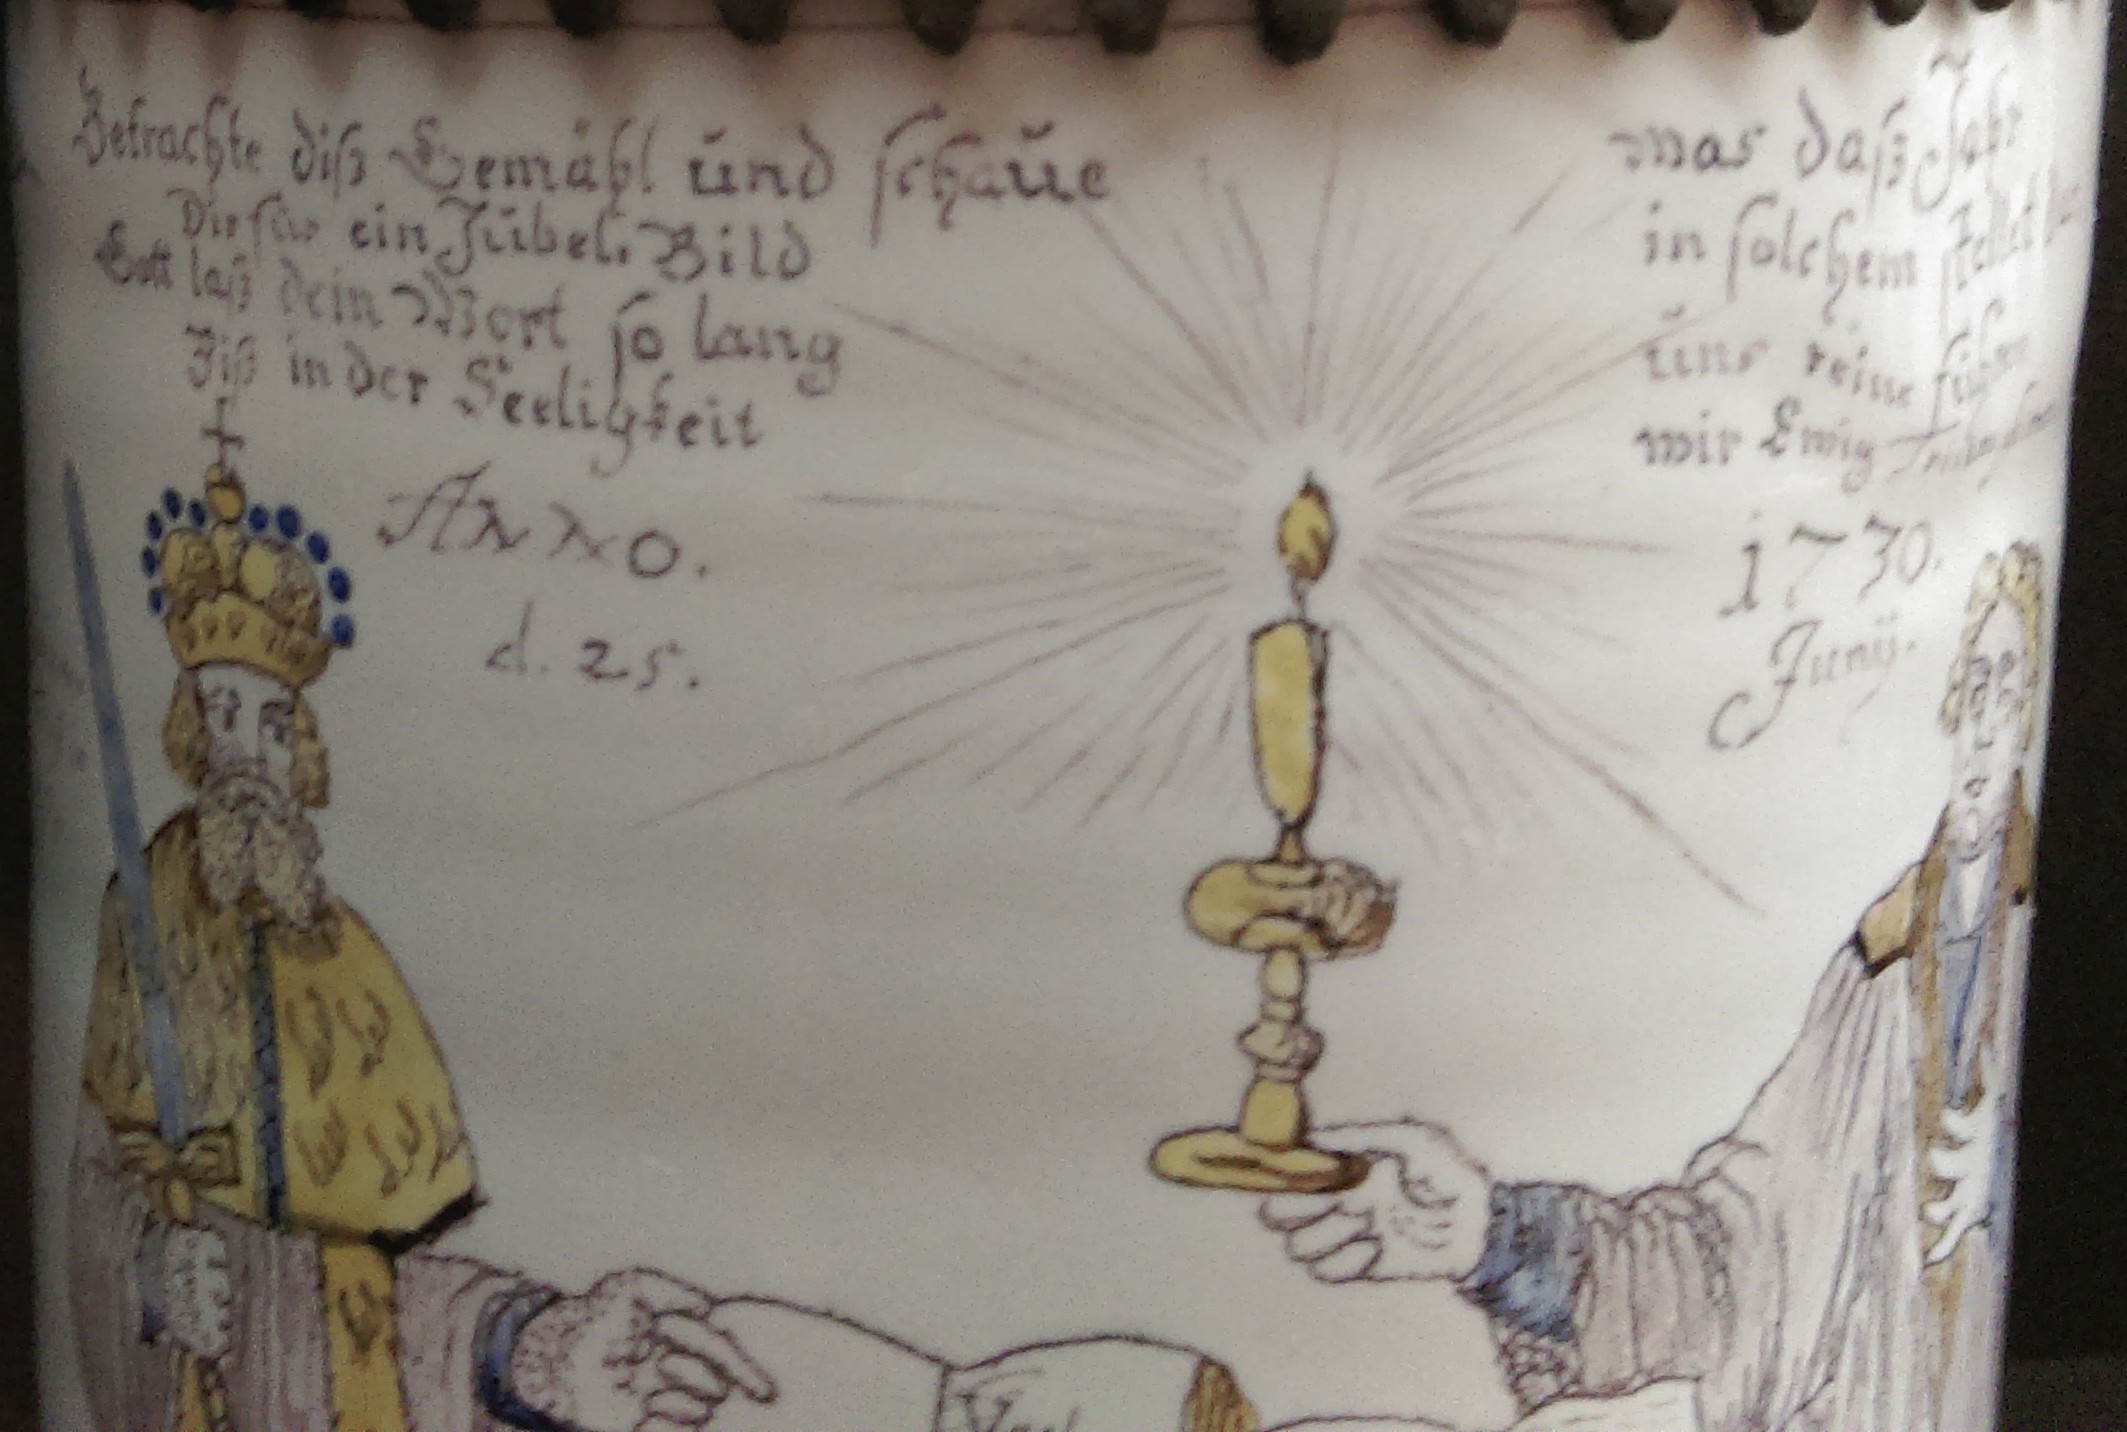 Betrachte diß Gemähl und schaue was daß Jahr
Dir für ein Jubel. Bild in solchem stellet
Gott laß dein Wort so lang uns reine
Biß in der Seeligkeit wir Ewig
Anno. 1730.
d. 25. Junij.